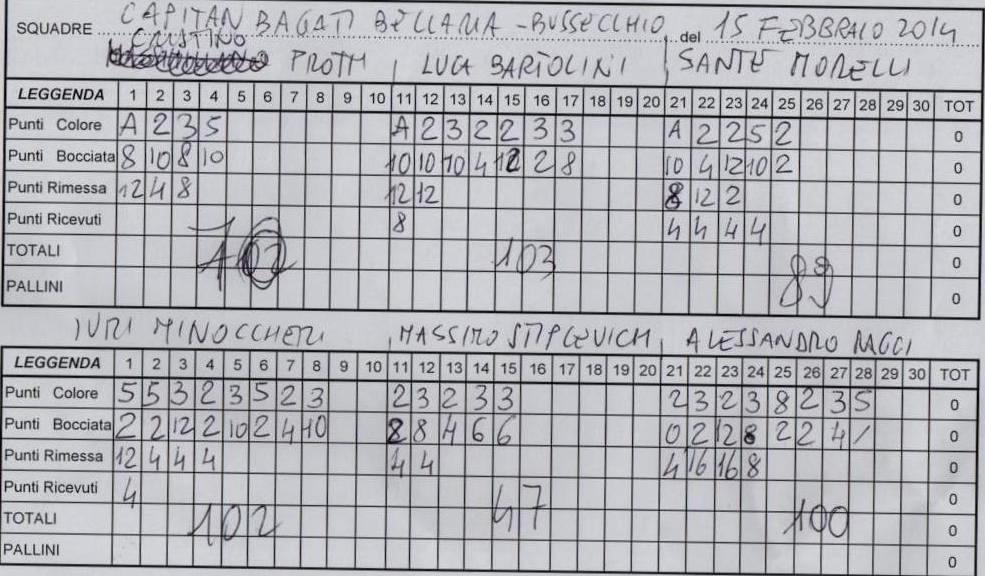 SQUADRE CAPITAN BAGATI BELLARIA - BUSSECCHIO del 15 FEBBRAIO 2014
CRISTINO PROTTI, LUCA BARTOLINI, SANTE MORELLI
LEGGENDA 1 2 3 4 5 6 7 8 9 10 11 12 13 14 15 16 17 18 19 20 21 22 23 24 25 26 27 28 29 30 TOT
Punti Colore A 2 3 5 A 2 3 2 2 3 3 A 2 2 5 2 0
Punti Bocciata 8 10 8 10 10 10 10 4 12 2 8 10 4 12 10 2 0
Punti Rimessa 12 4 8 12 12 8 12 2 0
Punti Ricevuti 8 4 4 4 4 0
TOTALI 102 103 89 0
PALLINI 0
IURI MINOCCHERI, MASSIMO STIPCEVICH, ALESSANDRO RAGGI
LEGGENDA 1 2 3 4 5 6 7 8 9 10 11 12 13 14 15 16 17 18 19 20 21 22 23 24 25 26 27 28 29 30 TOT
Punti Colore 5 5 3 2 3 5 2 3 2 3 2 3 3 2 3 2 3 8 2 3 5 0
Punti Bocciata 2 2 12 2 10 2 4 10 8 8 4 6 6 0 2 12 8 2 2 4 / 0
Punti Rimessa 12 4 4 4 4 4 4 16 16 8 0
Punti Ricevuti 4 0
TOTALI 102 47 100 0
PALLINI 0